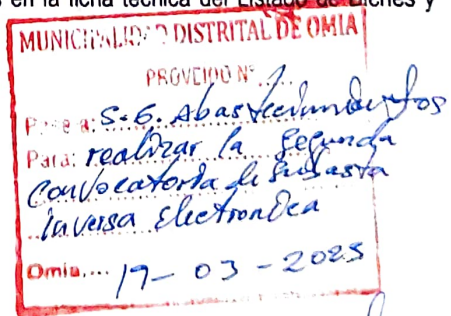 en la ficha técnica del Listado de Bienes y
MUNICIPALIDAD DISTRITAL DE OMIA
PROVEIDO N° 1
Pase a: S.G. Abastecimientos
Para: realizar la segunda
Convocatoria de Subasta
inversa electronica
Omia,... 19-03-2025